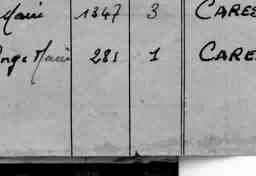 Marie 1347 3 CARES
Ange Marie 281 1 CARE